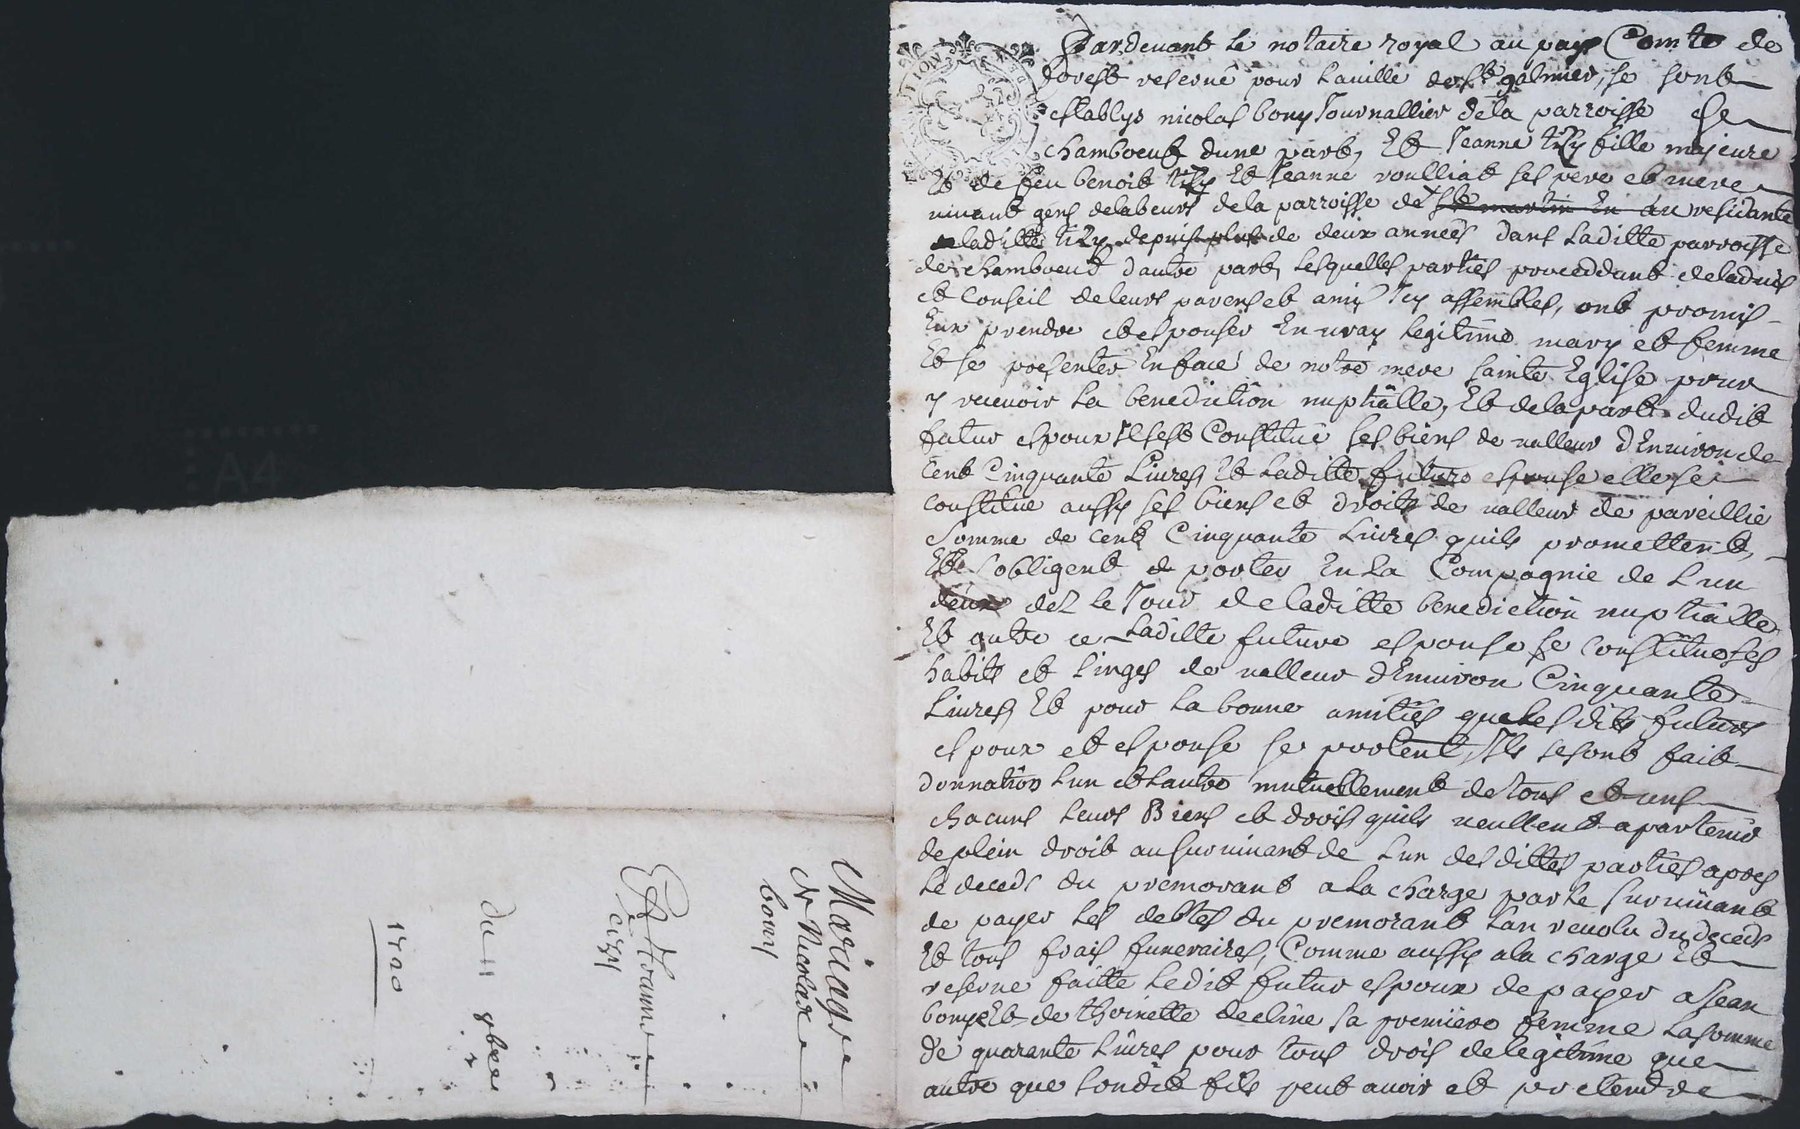 Pardevant le notaire royal au pays Comté de
forest reservé pour la ville de St galmier, se sont
establys nicolas bony Journallier de la parroisse de
chamboeuf dune part, Et Jeanne tizy fille majeure
Et de feu benoit tizy Et Jeanne roulliat ses pere et mere
vivant gens de labeurs de la parroisse de St martin En residante
laditte tizy depuis plus de deux années dans laditte parroisse
de chamboeuf dautre part, lesquelles parties proceddant de ladvis
et Conseil de leurs parens et amis Icy assemblés, ont promis
Eux prendre et espouser En vray legitime mary et femme
Et se presenter En face de notre mere sainte Eglise pour
y recevoir la benediction nuptialle, Et de la part dudit
futur espoux Il sest Constitué ses biens de valleur dEnviron de
Cent Cinquante Livres Et laditte future espouse elle se
constitue aussy ses biens et droits de valleur de pareillie
somme de cent Cinquante livres quils promettent,
Et sobligent de porter En la Compagnie de lun
deux dez le Jour de laditte benediction nuptialle
Et outre ce laditte future espouse se constitue ses
habits et linges de valleur dEnviron Cinquante
Livres, Et pour la bonne amitiés que lesdits futurs
espoux et espouse se portent, Ils se sont fait
donnation lun et lautre mutuellement de tous et uns
chacuns leurs Biens et drois quils veullent apartenir
de plein droit au survivant de lun des dittes parties apres
le deceds du premorant a la charge par le survivant
de payer les debtes du premorant lan revolu du deceds
Et tous frais funeraires, Comme aussy a la charge Et
reserve faitte ledit futur espoux de payer a Jean
bony Et de thoinette decline sa premiere femme la somme
de quarante livres pour tous drois de legitime que
autre que sondit fils peut avoir et pretendre
Mariage
de Nicolas
bony
Et Jeanne
tizy
du 11 9bre
1720